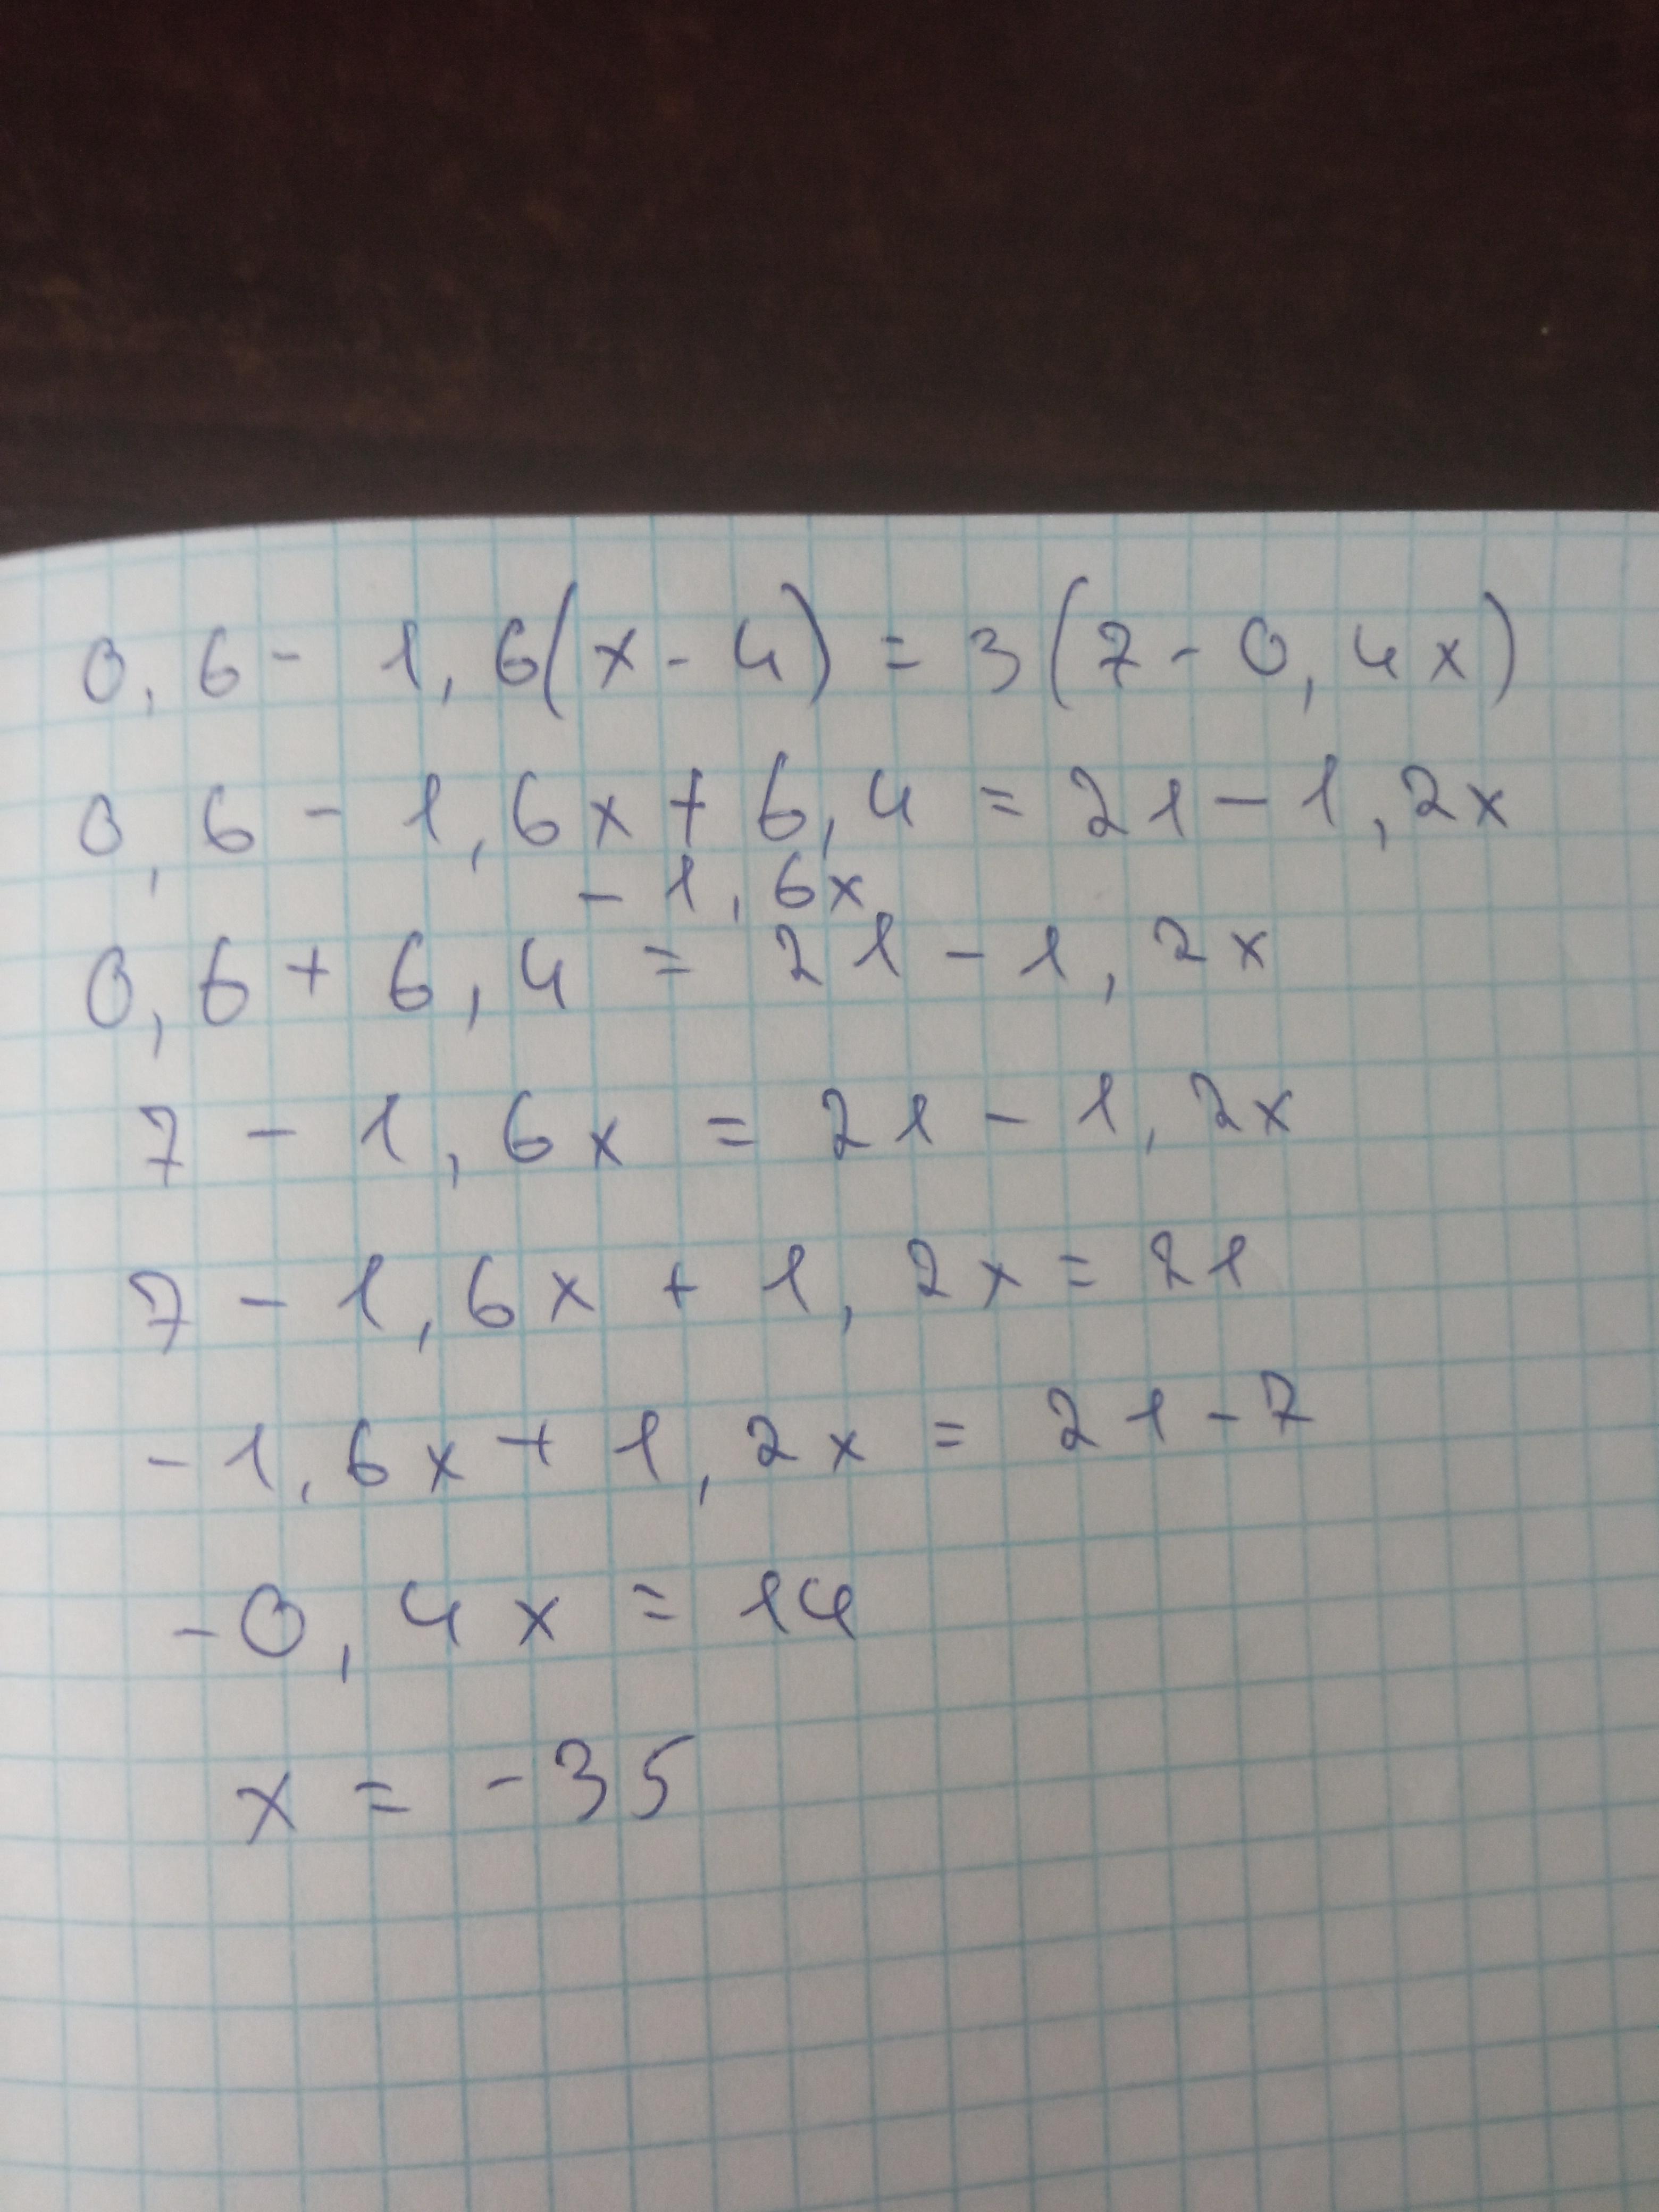 0,6 - 1,6(x - 4) = 3(7 - 0,4x)
0,6 - 1,6x + 6,4 = 21 - 1,2x
- 1,6x
0,6 + 6,4 = 21 - 1,2x
7 - 1,6x = 21 - 1,2x
7 - 1,6x + 1,2x = 21
-1,6x + 1,2x = 21 - 7
-0,4x = 14
x = -35